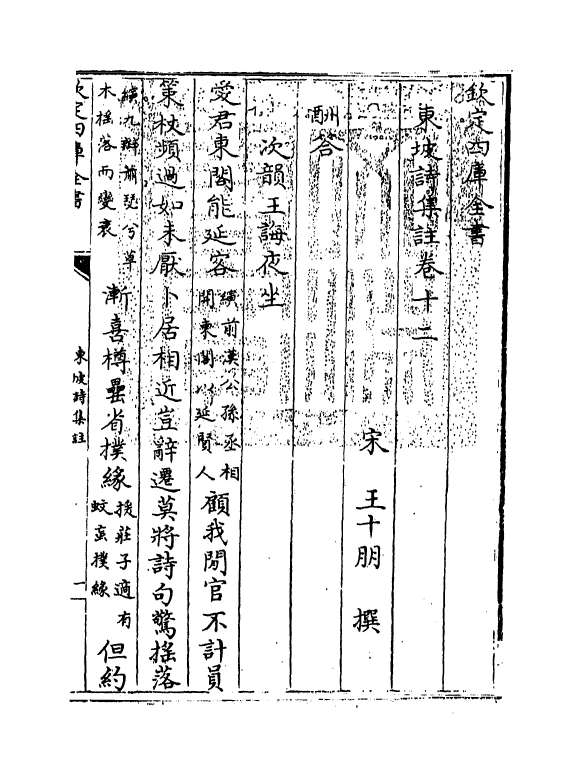 欽定四庫全書
東坡詩集註卷十二
宋 王十朋 撰
酬答
次韻王誨夜坐
愛君東閣能延客
縯前漢公孫丞相
開東閣以延賢人
顧我閒官不計員
策杖頻過如未厭卜居相近豈辭遷莫將詩句驚揺落
縯九辯蕭瑟兮草
木揺落而變衰
漸喜樽罍省撲緣
援莊子適有
蚊䖟撲緣
但約
欽定四庫全書
東坡詩集註
一